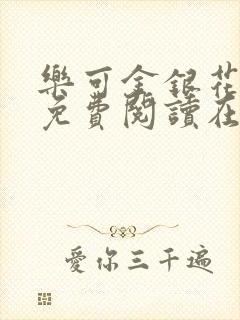 樂可金銀花
免費閱讀在
愛你三千遍